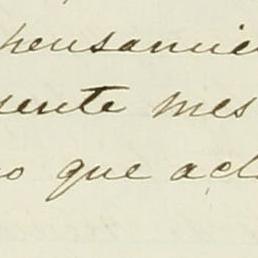 pensamie
sente mes
o que act